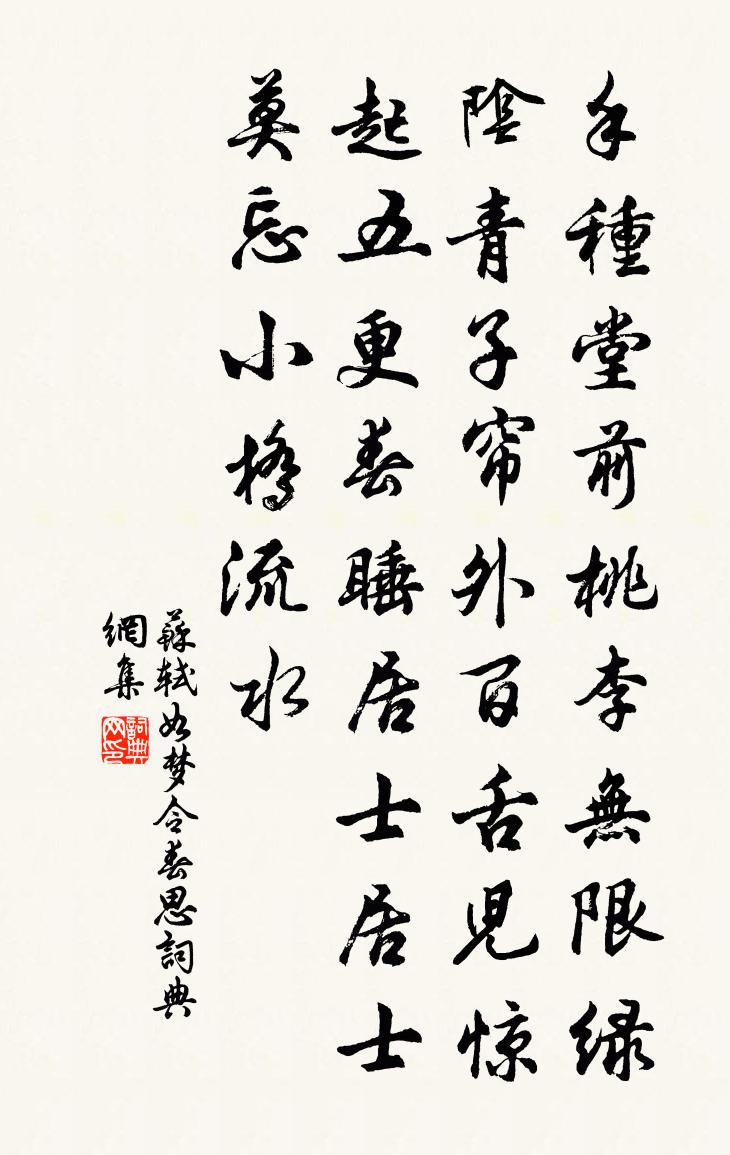 手種堂前桃李無限緑
陰青子帘外百舌児惊
起五更春睡居士居士
莫忘小橋流水
蘇軾如梦令春思詞典
網集
詞典网印